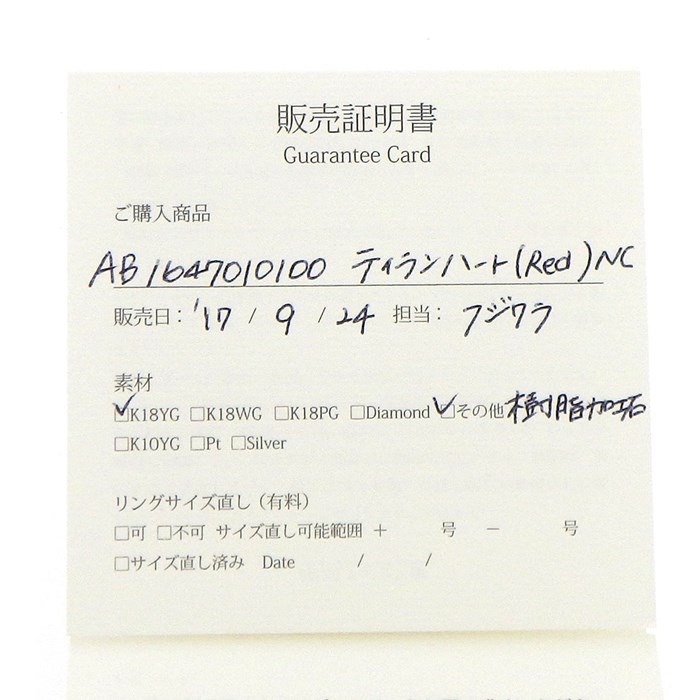 販売証明書
Guarantee Card
ご購入商品
AB1647010100 ティランハート(Red)NC
販売日: '17 / 9 / 24 担当: フジワラ
素材
☑K18YG □K18WG □K18PG □Diamond ☑その他 樹脂加工石
□K10YG □Pt □Silver
リングサイズ直し(有料)
□可 □不可 サイズ直し可能範囲 + 号 − 号
□サイズ直し済み Date / /